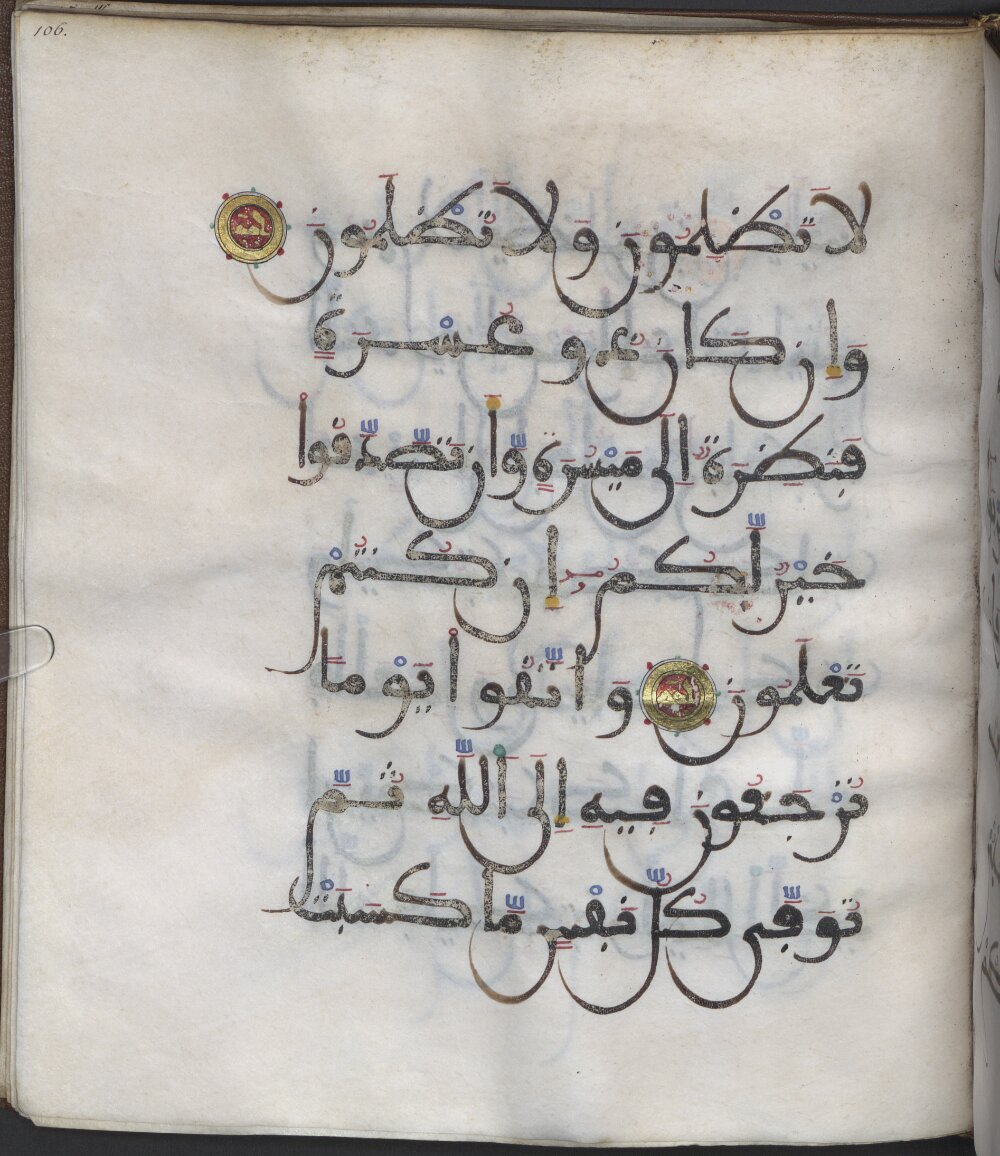 106.
لَا تَظْلِمُونَ وَلَا تُظْلَمُونَ
وَإِن كَانَ ذُو عُسْرَةٍ
فَنَظِرَةٌ إِلَىٰ مَيْسُرَةٍ وَّأَن تَصَّدَّقُوا
خَيْرٌ لَّكُمْ إِن كُنتُمْ
تَعْلَمُونَ وَاتَّقُوا يَوْمًا
تُرْجَعُونَ فِيهِ إِلَى اللَّهِ ثُمَّ
تُوَفَّىٰ كُلُّ نَفْسٍ مَّا كَسَبَتْ